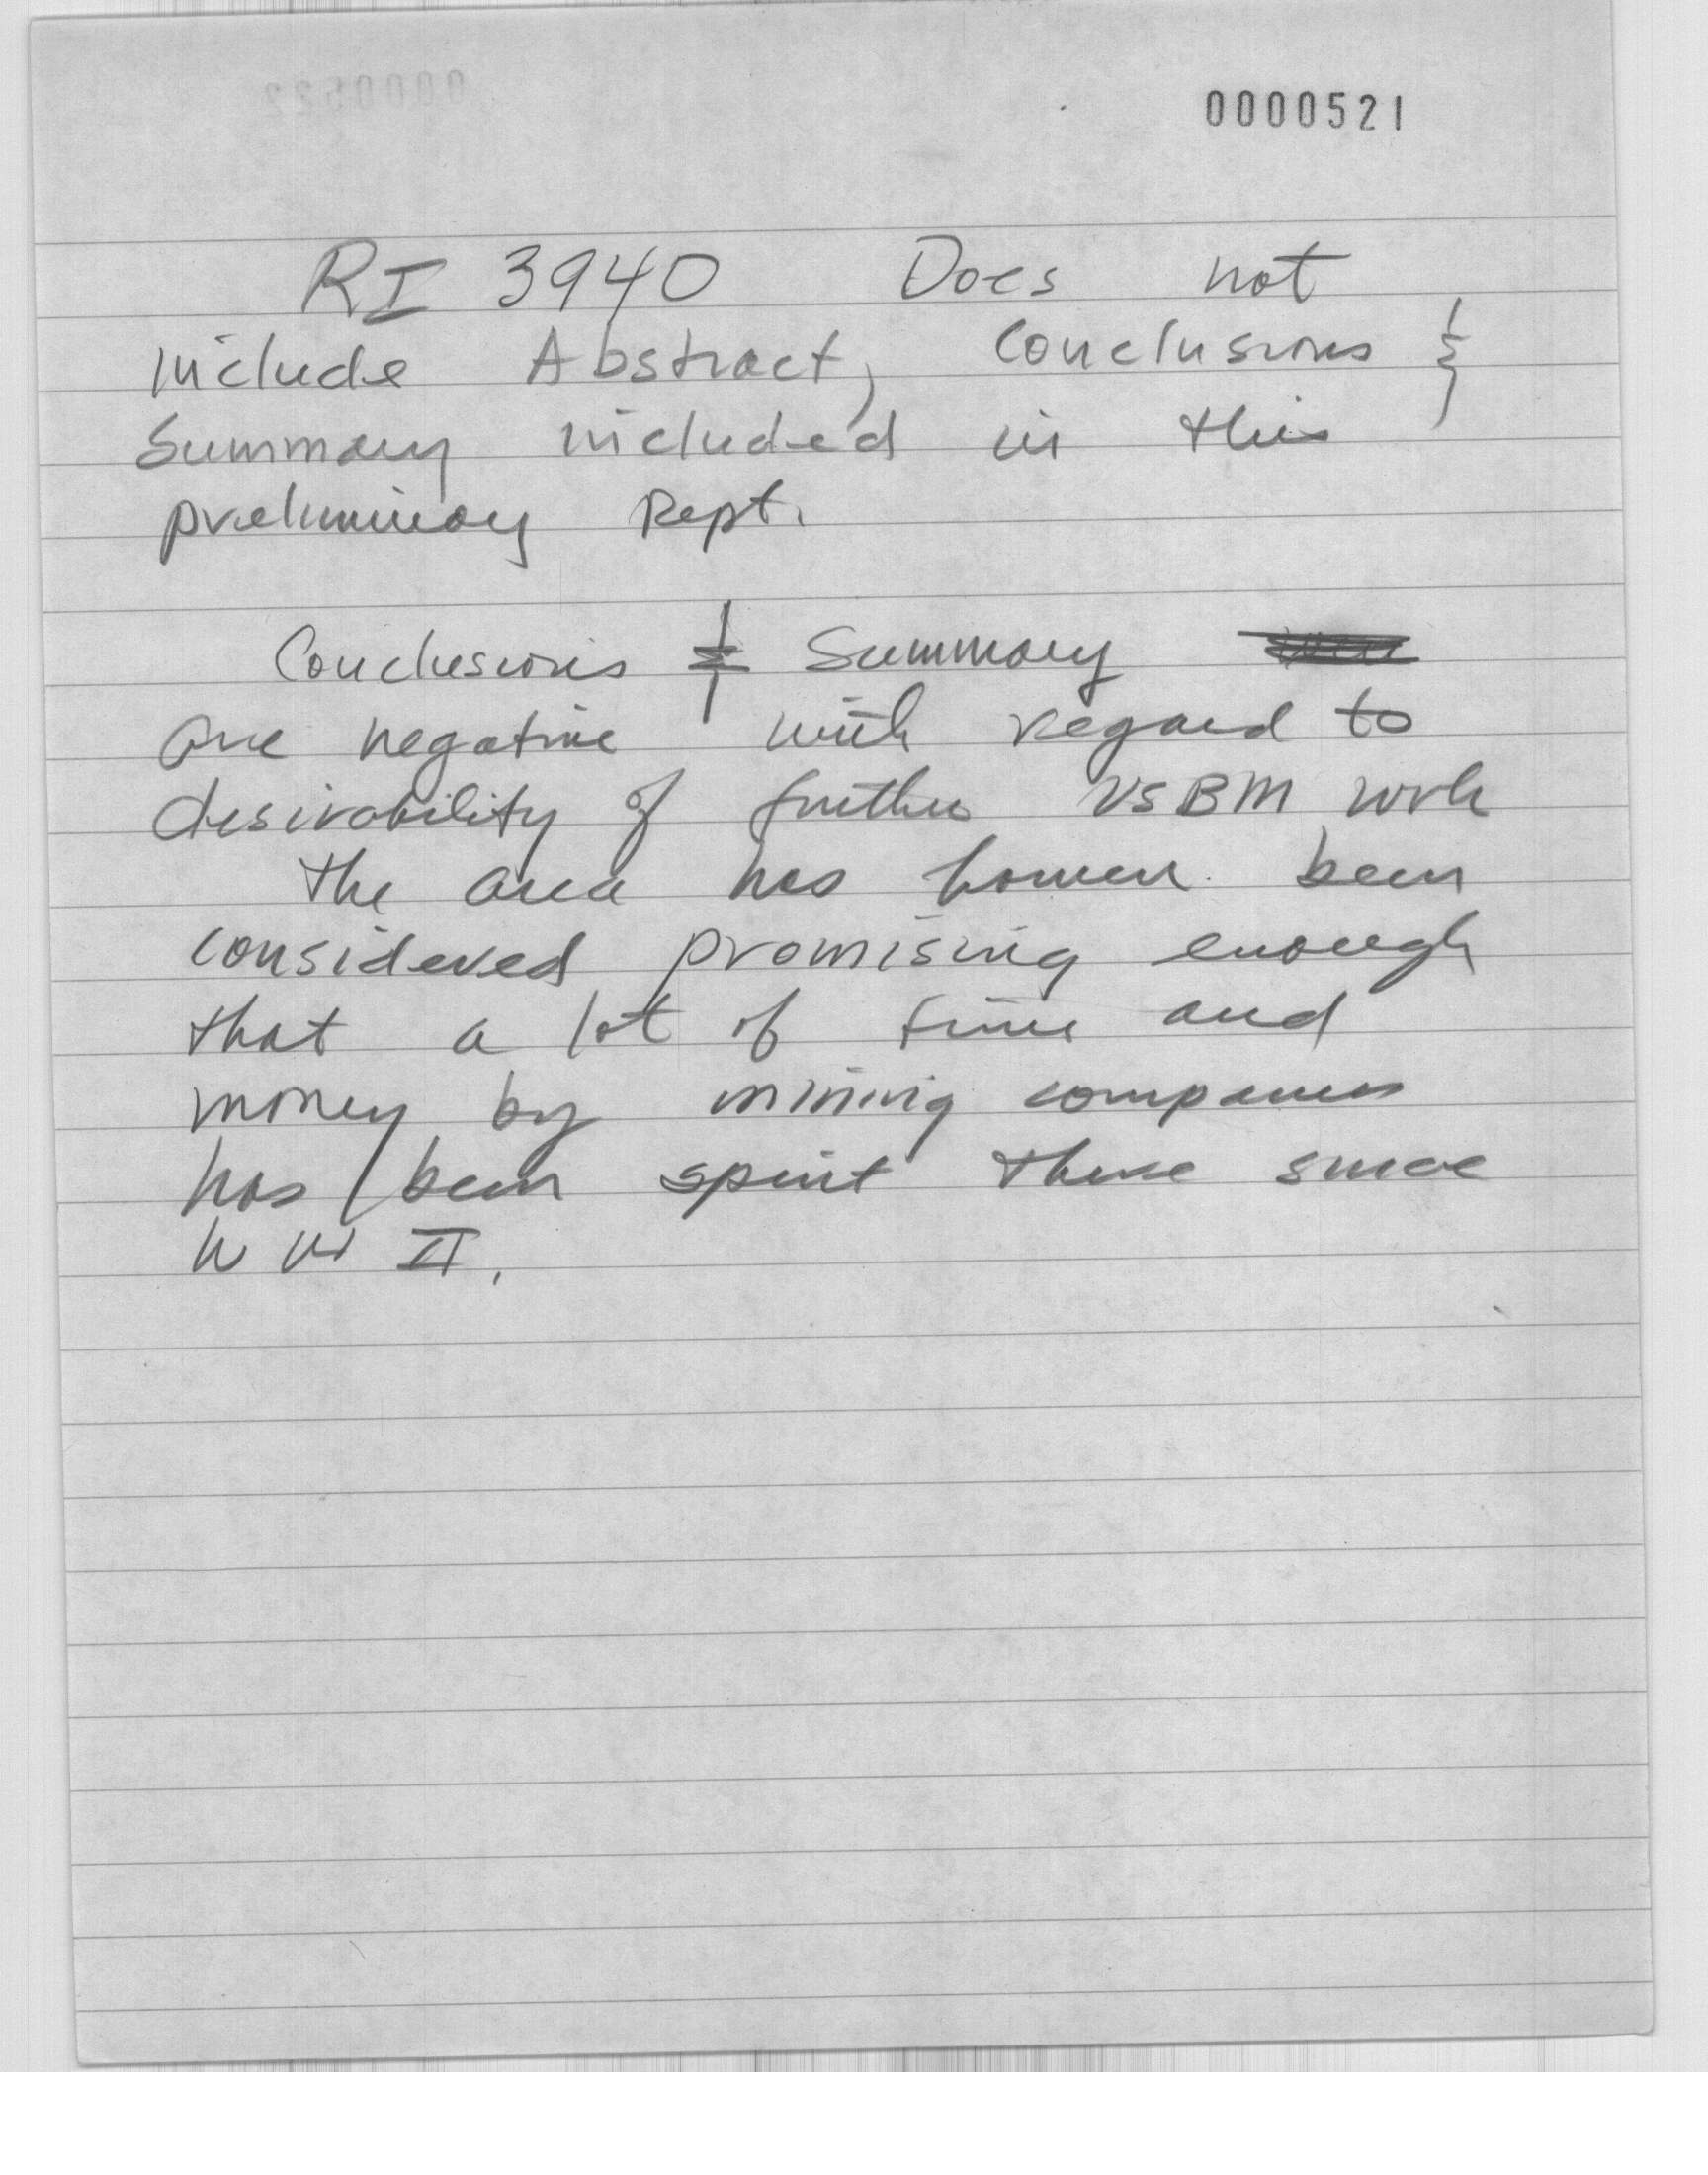 0000521
RI 3940 Does not
include Abstract, Conclusions &
Summary included in this
preliminary Rept.
Conclusions & Summary
are negative with regard to
desirability of further USBM work
the area has however been
considered promising enough
that a lot of time and
money by mining companies
has been spent there since
WW II.